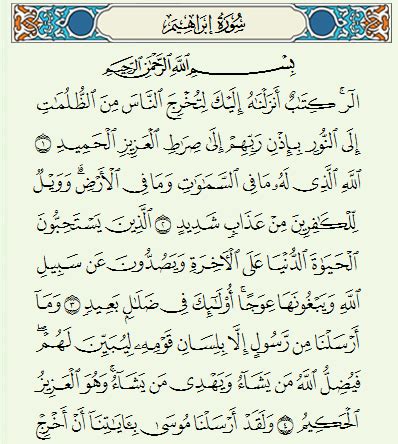 سُورَةُ إِبْرَاهِيمَ
بِسْمِ ٱللَّهِ ٱلرَّحْمَٰنِ ٱلرَّحِيمِ
الٓر ۚ كِتَٰبٌ أَنزَلْنَٰهُ إِلَيْكَ لِتُخْرِجَ ٱلنَّاسَ مِنَ ٱلظُّلُمَٰتِ
إِلَى ٱلنُّورِ بِإِذْنِ رَبِّهِمْ إِلَىٰ صِرَٰطِ ٱلْعَزِيزِ ٱلْحَمِيدِ ١
ٱللَّهِ ٱلَّذِى لَهُۥ مَا فِى ٱلسَّمَٰوَٰتِ وَمَا فِى ٱلْأَرْضِ ۗ وَوَيْلٌ
لِّلْكَٰفِرِينَ مِنْ عَذَابٍ شَدِيدٍ ٢ ٱلَّذِينَ يَسْتَحِبُّونَ
ٱلْحَيَوٰةَ ٱلدُّنْيَا عَلَى ٱلْءَاخِرَةِ وَيَصُدُّونَ عَن سَبِيلِ
ٱللَّهِ وَيَبْغُونَهَا عِوَجًا ۚ أُو۟لَٰٓئِكَ فِى ضَلَٰلٍۭ بَعِيدٍ ٣ وَمَآ
أَرْسَلْنَا مِن رَّسُولٍ إِلَّا بِلِسَانِ قَوْمِهِۦ لِيُبَيِّنَ لَهُمْ ۖ
فَيُضِلُّ ٱللَّهُ مَن يَشَآءُ وَيَهْدِى مَن يَشَآءُ ۚ وَهُوَ ٱلْعَزِيزُ
ٱلْحَكِيمُ ٤ وَلَقَدْ أَرْسَلْنَا مُوسَىٰ بِـَٔايَٰتِنَآ أَنْ أَخْرِجْ